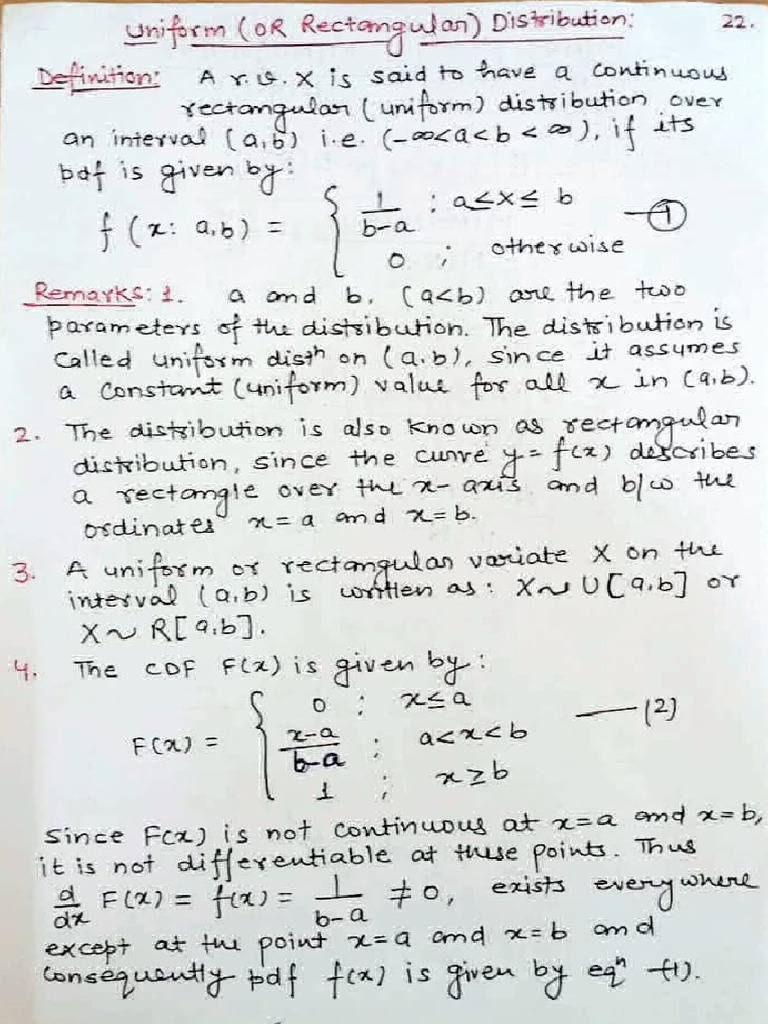 Uniform (OR Rectangular) Distribution: 22.
Definition: A r.v. X is said to have a continuous
rectangular (uniform) distribution over
an interval (a,b) i.e. (-∞<a<b<∞), if its
pdf is given by:
f(x: a,b) = { 1/(b-a) ; a≤x≤ b —①
0 ; otherwise
Remarks: 1. a and b, (a<b) are the two
parameters of the distribution. The distribution is
called uniform distⁿ on (a,b), since it assumes
a constant (uniform) value for all x in (a,b).
2. The distribution is also known as rectangular
distribution, since the curve y = f(x) describes
a rectangle over the x-axis and b/w the
ordinates x=a and x=b.
3. A uniform or rectangular variate X on the
interval (a,b) is written as: X~U[a,b] or
X~R[a,b].
4. The CDF F(x) is given by:
F(x) = { 0 ; x≤a —(2)
(x-a)/(b-a) ; a<x<b
1 ; x≥b
Since F(x) is not continuous at x=a and x=b,
it is not differentiable at these points. Thus
d/dx F(x) = f(x) = 1/(b-a) ≠ 0, exists everywhere
except at the point x=a and x=b and
consequently pdf f(x) is given by eqⁿ -(1).